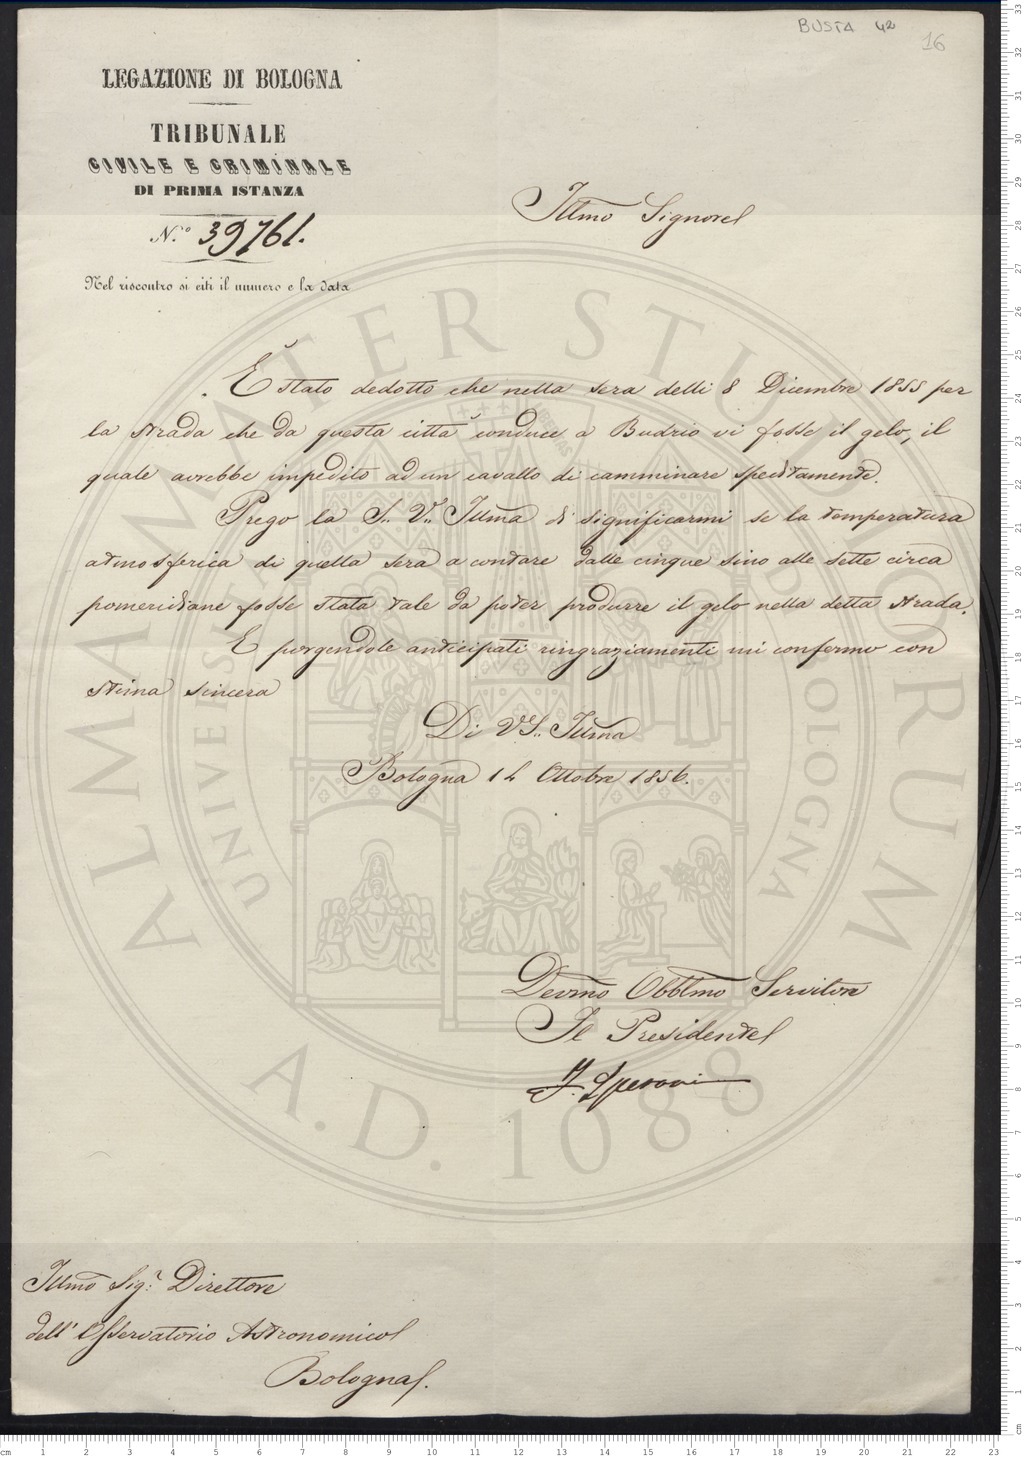 BUSTA 42
16
LEGAZIONE DI BOLOGNA
TRIBUNALE
CIVILE E CRIMINALE
DI PRIMA ISTANZA
N.o 39761.
Nel riscontro si citi il numero e la data
Illmo Signore
È stato dedotto che nella sera delli 8 Dicembre 1855 per
la strada che da questa città conduce a Budrio vi fosse il gelo, il
quale avrebbe impedito ad un cavallo di camminare speditamente.
Prego la S. V. Illma di significarmi se la temperatura
atmosferica di quella sera a contare dalle cinque sino alle sette circa
pomeridiane fosse stata tale da poter produrre il gelo nella detta strada.
E porgendole anticipati ringraziamenti mi confermo con
stima sincera
Di VS. Illma
Bologna 14 Ottobre 1856.
Devmo Obblmo Servitore
Il Presidente
Illmo Sigr. Direttore
dell' Osservatorio Astronomico
Bologna.
ALMA MATER STUDIORUM
UNIVERSITAS BOLOGNA
A.D. 1088
cm 1 2 3 4 5 6 7 8 9 10 11 12 13 14 15 16 17 18 19 20 21 22 23
cm 1 2 3 4 5 6 7 8 9 10 11 12 13 14 15 16 17 18 19 20 21 22 23 24 25 26 27 28 29 30 31 32 33